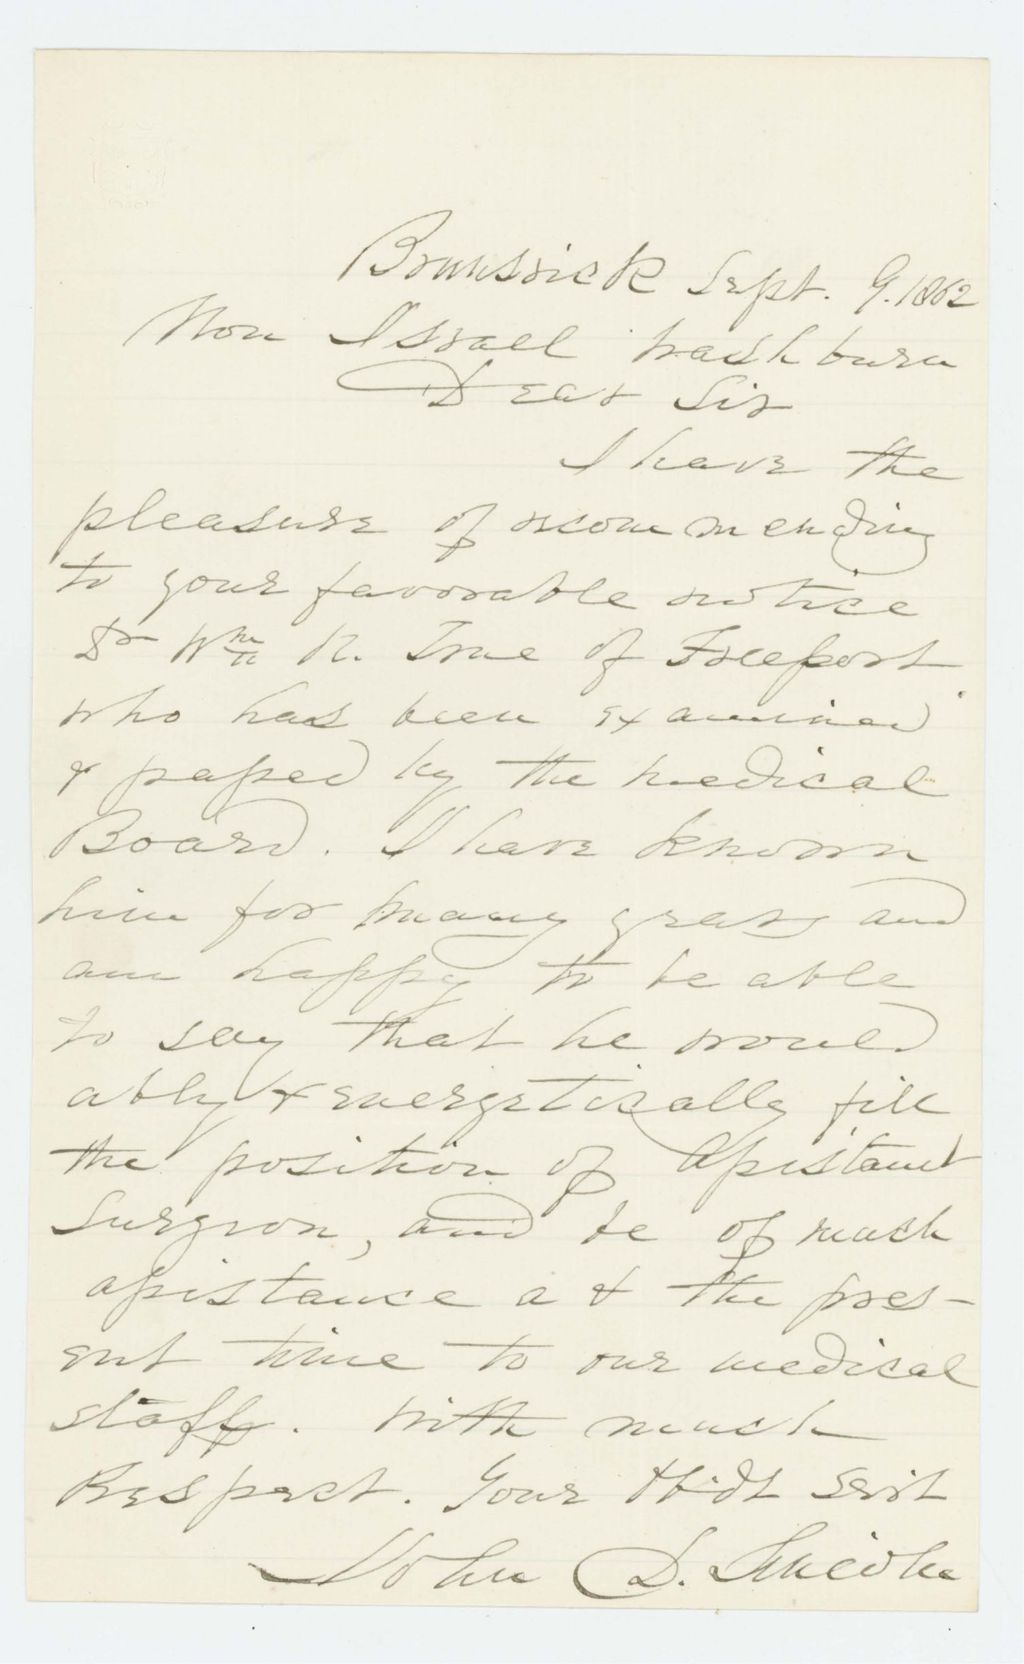 Brunswick Sept. 9. 1862
Hon Israel Washburn
Dear Sir
I have the
pleasure of recommending
to your favorable notice
Dr Wm N. True of Freeport
who has been examined
& passed by the medical
Board. I have known
him for many years and
am happy to be able
to say that he would
ably & energetically fill
the position of Assistant
Surgeon, and be of much
assistance at the pres-
ent time to our medical
staff. With much
Respect. Your Obdt Servt
John D. Lincoln